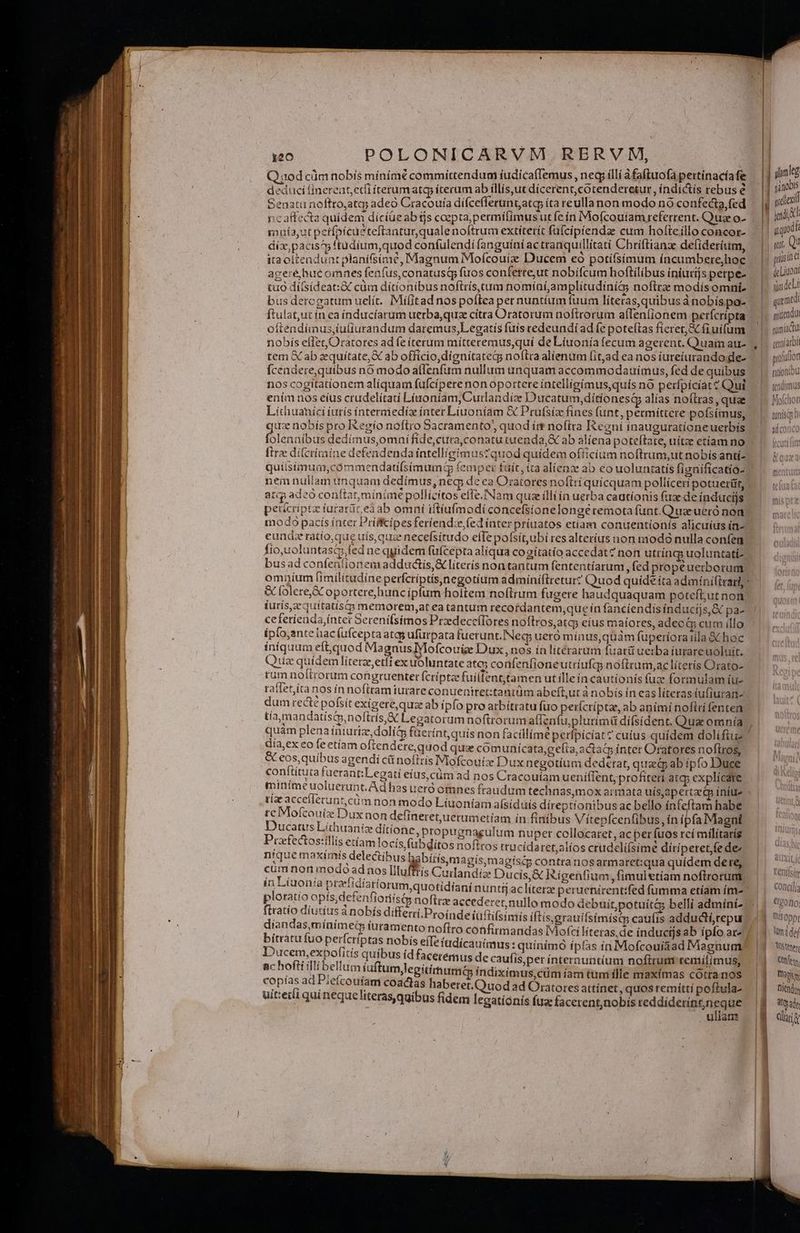 120 POLONICARVM RERVM,
Quod cùm nobis minimè committendum iudicassemus, neq; illi à fastuosa pertinacia se
deduci sinerent, etsi iterum atq; iterum ab illis, ut dicerent, cōtenderetur, indictis rebus è
Senatu nostro, atq; adeò Cracouia discesserunt, atq; ita re ulla non modo nō confecta, sed
ne affecta quidem: diciúe ab ijs cœpta, permisimus ut se in Moscouiam referrent. Quæ o-
mnia, ut perspicuè testantur, quale nostrum extiterit suscipiendæ cum hoste illo concor-
diæ, pacisq́; studium, quod consulendi sanguini ac tranquillitati Christianæ desiderium,
ita ostendunt planissimè, Magnum Moscouiæ Ducem eò potissimum incumbere, hoc
agere, huc omnes sensus, conatusq́; suos conferre, ut nobiscum hostilibus iniurijs perpe-
tuò dissideat: & cùm ditionibus nostris, tum nomini, amplitudiniq́; nostræ modis omni-
bus derogatum uelit. Misit ad nos postea per nuntium suum literas, quibus à nobis po-
stulat, ut in ea induciarum uerba, quæ citra Oratorum nostrorum assensionem perscripta
ostendimus, iusiurandum daremus, Legatis suis redeundi ad se potestas fieret, & si uisum
nobis esset, Oratores ad se iterum mitteremus, qui de Liuonia secum agerent. Quam au-
tem & ab æquitate, & ab officio, dignitateq́; nostra alienum sit, ad ea nos iureiurando de-
scendere, quibus nō modo assensum nullum unquam accommodauimus, sed de quibus
nos cogitationem aliquam suscipere non oportere intelligimus, quis nō perspiciat? Qui
enim nos eius crudelitati Liuoniam, Curlandiæ Ducatum, ditionesq́; alias nostras, quæ
Lithuanici iuris intermediæ inter Liuoniam & Prussiæ fines sunt, permittere possimus,
quæ nobis pro Regio nostro Sacramento, quod in nostra Regni inauguratione uerbis
solennibus dedimus, omni fide, cura, conatu tuenda, & ab aliena potestate, uitæ etiam no
stræ discrimine defendenda intelligimus? quod quidem officium nostrum, ut nobis anti-
quissimum, commendatissimumq́; semper fuit, ita alienæ ab eo uoluntatis significatio-
nem nullam unquam dedimus, neq; de ea Oratores nostri quicquam polliceri potuerūt,
atq; adeò constat, minimè pollicitos esse. Nam quæ illi in uerba cautionis suæ de inducijs
perscriptæ iurarūt, ea ab omni istiusmodi concessione longè remota sunt. Quæ uerò non
modò pacis inter Principes feriendæ, sed inter priuatos etiam conuentionis alicuius in-
eundæ ratio, quæ uis, quæ necessitudo esse possit, ubi res alterius non modò nulla consen
sio, uoluntasq́;, sed ne quidem suscepta aliqua cogitatio accedat? non utrinq; uoluntati-
bus ad consensionem adductis, & literis non tantum sententiarum, sed propè uerborum
omnium similitudine perscriptis, negotium administretur? Quod quidē ita administrari,
& solere, & oportere, hunc ipsum hostem nostrum fugere haudquaquam potest, ut non
iuris, æquitatisq́; memorem, at ea tantum recordantem, quæ in sanciendis inducijs, & pa-
ce serienda, inter Serenissimos Prædecessores nostros, atq; eius maiores, adeoq́; cum illo
ipso, antehac suscepta atq; usurpata fuerunt. Neq; uerò minus, quàm superiora illa & hoc
iniquum est, quod Magnus Moscouiæ Dux, nos in literarum suarū uerba iurare uoluit.
Quæ quidem literæ, etsi ex uoluntate atq; consensione utriusq; nostrum, ac literis Orato-
rum nostrorum congruenter scriptæ fuissent, tamen ut ille in cautionis suæ formulam iu-
rasset, ita nos in nostram iurare conueniret: tantùm abest, ut à nobis in eas literas iusiuran-
dum rectè possit exigere, quæ ab ipso pro arbitratu suo perscriptæ, ab animi nostri senten
tia, mandatisq́;, nostris, & Legatorum nostrorum assensu, plurimū dissident. Quæ omnia
quàm plena iniuriæ, doliq́; fuerint, quis non facillimè perspiciat? cuius quidem dolis suæ
dia, ex eo se etiam ostendere, quod quæ comunicata, gesta, actaq́; inter Oratores nostros,
& eos, quibus agendi cū nostris Moscouiæ Dux negotium dederat, quæq́; ab ipso Duce
constituta fuerant: Legati eius, cùm ad nos Cracouiam uenissent, profiteri atq; explicare
minimè uoluerunt. Ad has uerò omnes fraudum technas, mox armata uis, apertæq́; iniu-
riæ accesserunt, cùm non modo Liuoniam assiduis direptionibus ac bello infestam habe
re Moscouiæ Dux non desineret, uerumetiam in finibus Vitepscensibus, in ipsa Magni
Ducatus Lithuaniæ ditione, propugnagulum nuper collocaret, ac per suos rei militaris
Præfectos: illis etiam locis, subditos nostros trucidaret, alios crudelissimè diriperet, se de-
nique maximis delectibus habitis, magis, magisq́; contra nos armaret: qua quidem de re,
cùm non modò ad nos Illustris Curlandiæ Ducis, & Rigensium, simul etiam nostrorum
in Liuonia præsidiariorum, quotidiani nuntij ac literæ peruenirent: sed summa etiam im-
ploratio opis, defensionisq́; nostræ accederet, nullo modo debuit, potuitq́; belli admini-
stratio diutius à nobis differri. Proinde iustissimis istis, grauissimisq́; causis adducti, repu
diandas, minimeq́; iuramento nostro confirmandas Mosci literas, de inducijs ab ipso ar-
bitratu suo perscriptas nobis esse iudicauimus: quinimò ipsas in Moscouiā ad Magnum
Ducem, expositis quibus id faceremus de causis, per internuntium nostrum remisimus,
ac hosti illi bellum iustum, legitimumq́; indiximus, cùm iam tum ille maximas cōtra nos
copias ad Plescouiam coactas haberet. Quod ad Oratores attinet, quos remitti postula-
uit: etsi qui neque literas, quibus fidem legationis suæ facerent, nobis reddiderint, neque
ullam